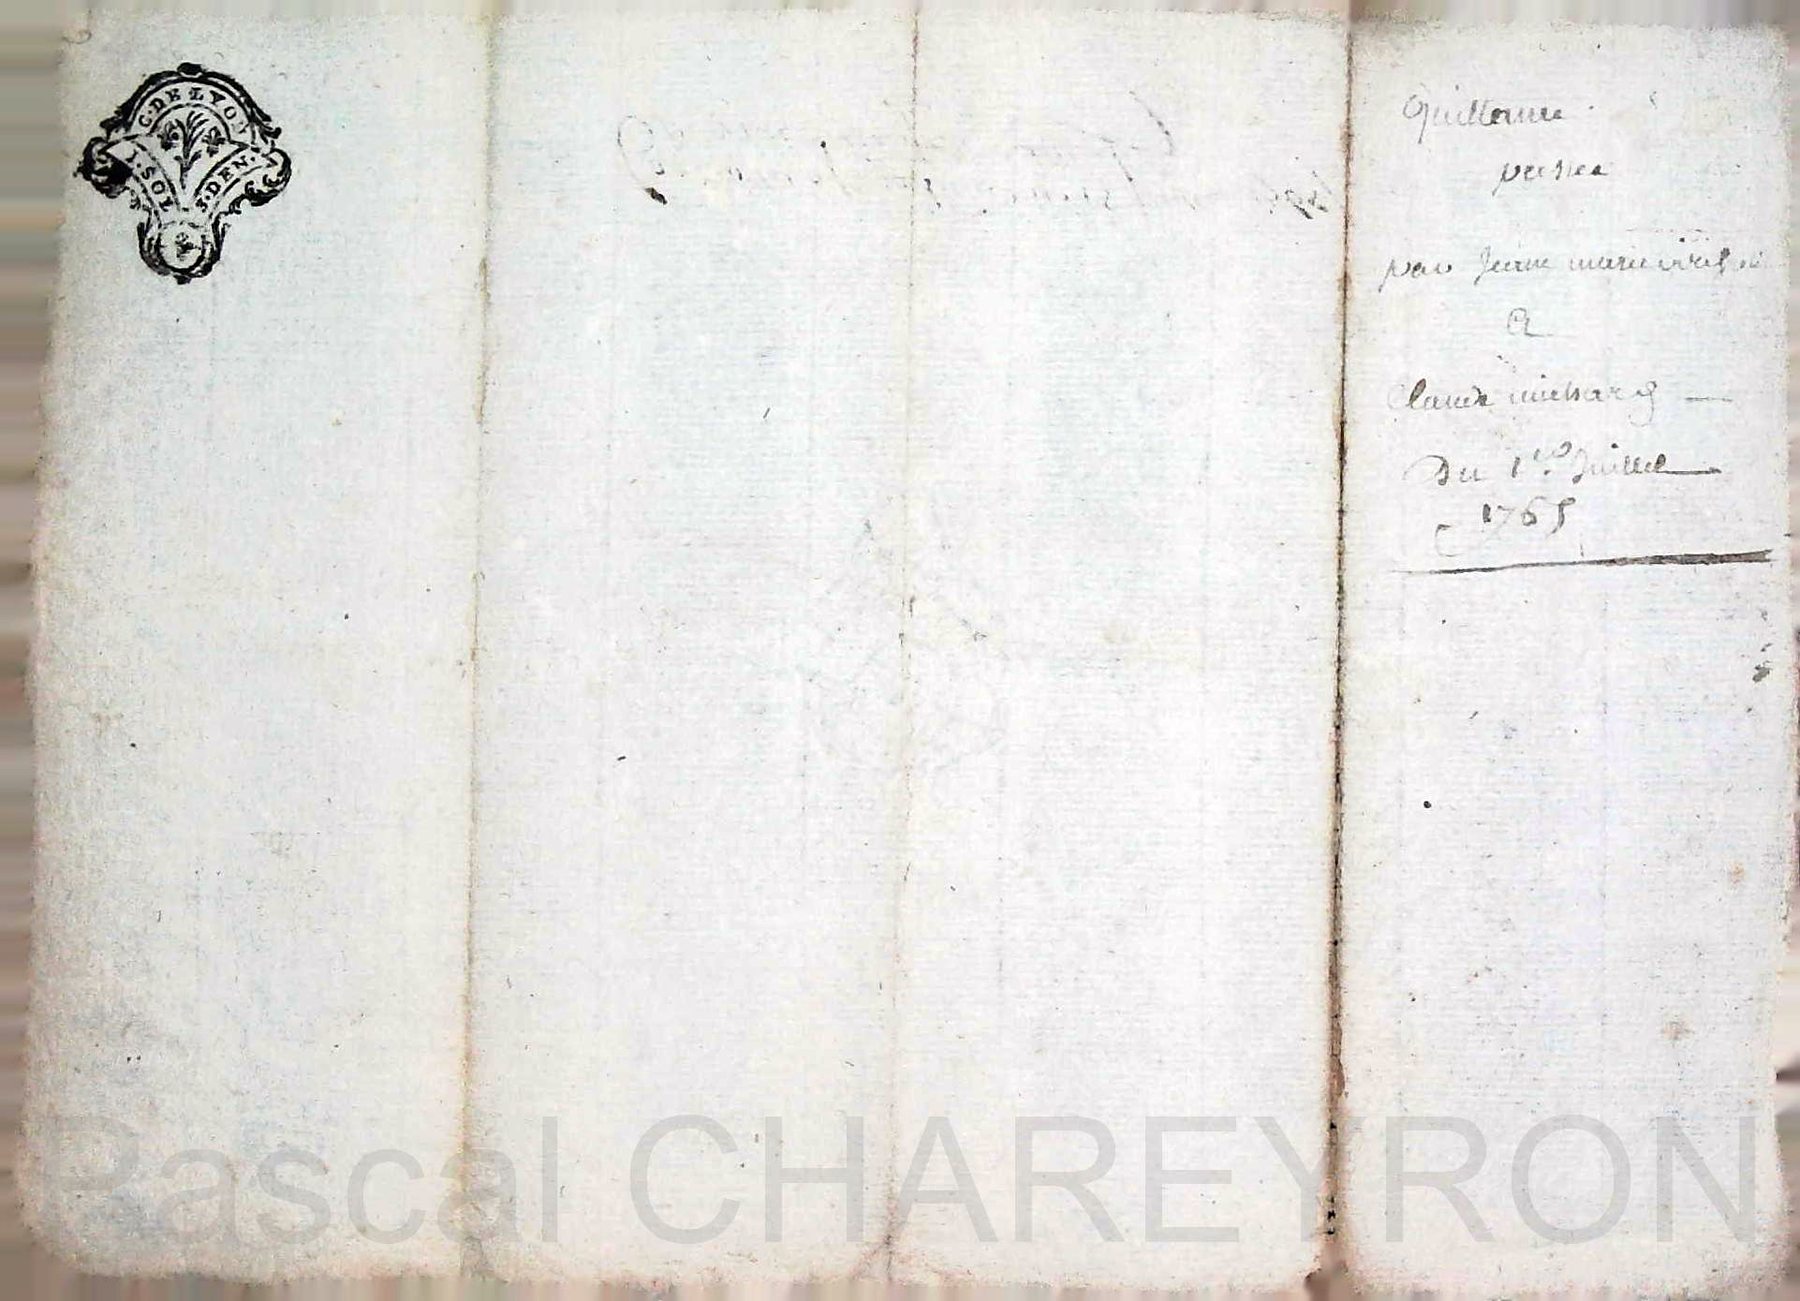 G. DE LYON
1. SOL
3. DEN.
Quittance
passée
par Jeane marie
A
Claude michard —
Du 1er Juillet
1765
Pascal CHAREYRON